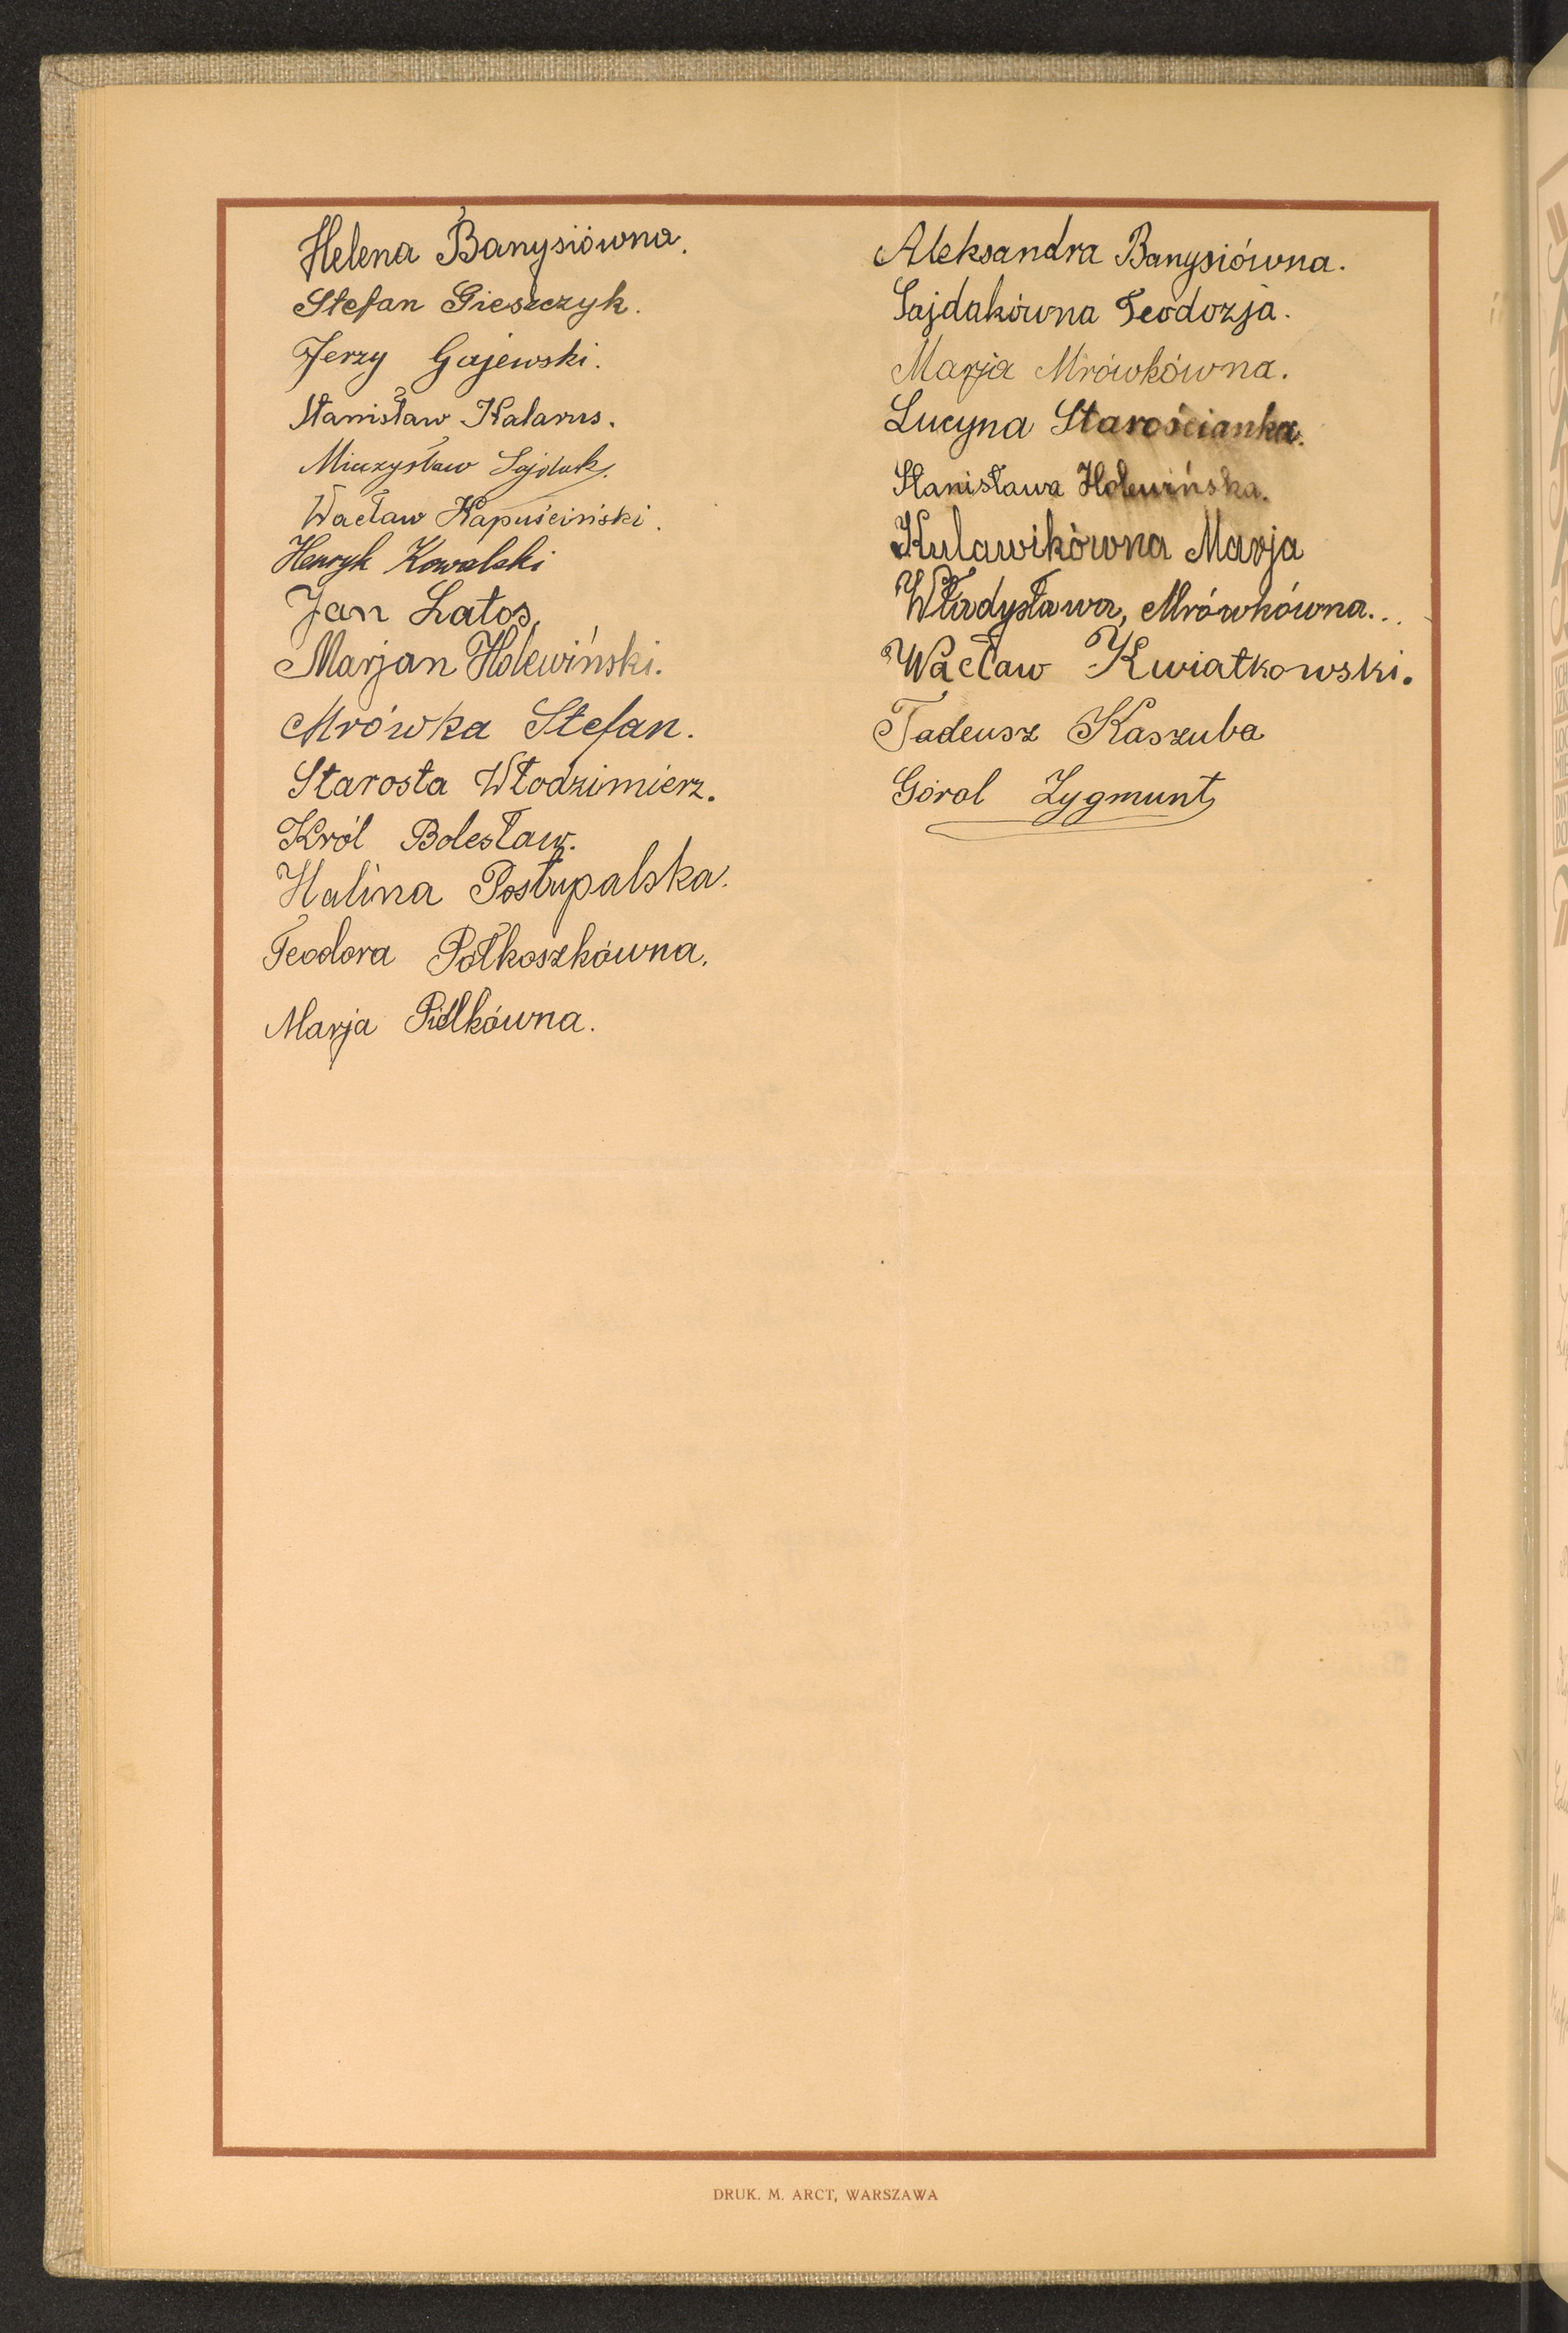 Helena Banysiówna.
Stefan Gieszczyk.
Jerzy Gajewski.
Stanisław Kalarus.
Mieczysław Sajdak.
Wacław Kapuściński.
Henryk Kowalski
Jan Latos.
Marjan Holewiński.
Mrówka Stefan.
Starosta Włodzimierz.
Król Bolesław.
Halina Postupalska.
Teodora Półkoszkówna.
Marja Pielkówna.
Aleksandra Banysiówna.
Sajdakówna Teodozja.
Marja Mrówkówna.
Lucyna Starościanka.
Stanisława Holewińska.
Kulawikówna Marja
Władysława, Mrówkówna...
Wacław Kwiatkowski.
Tadeusz Kaszuba
Góral Zygmunt
DRUK. M. ARCT, WARSZAWA